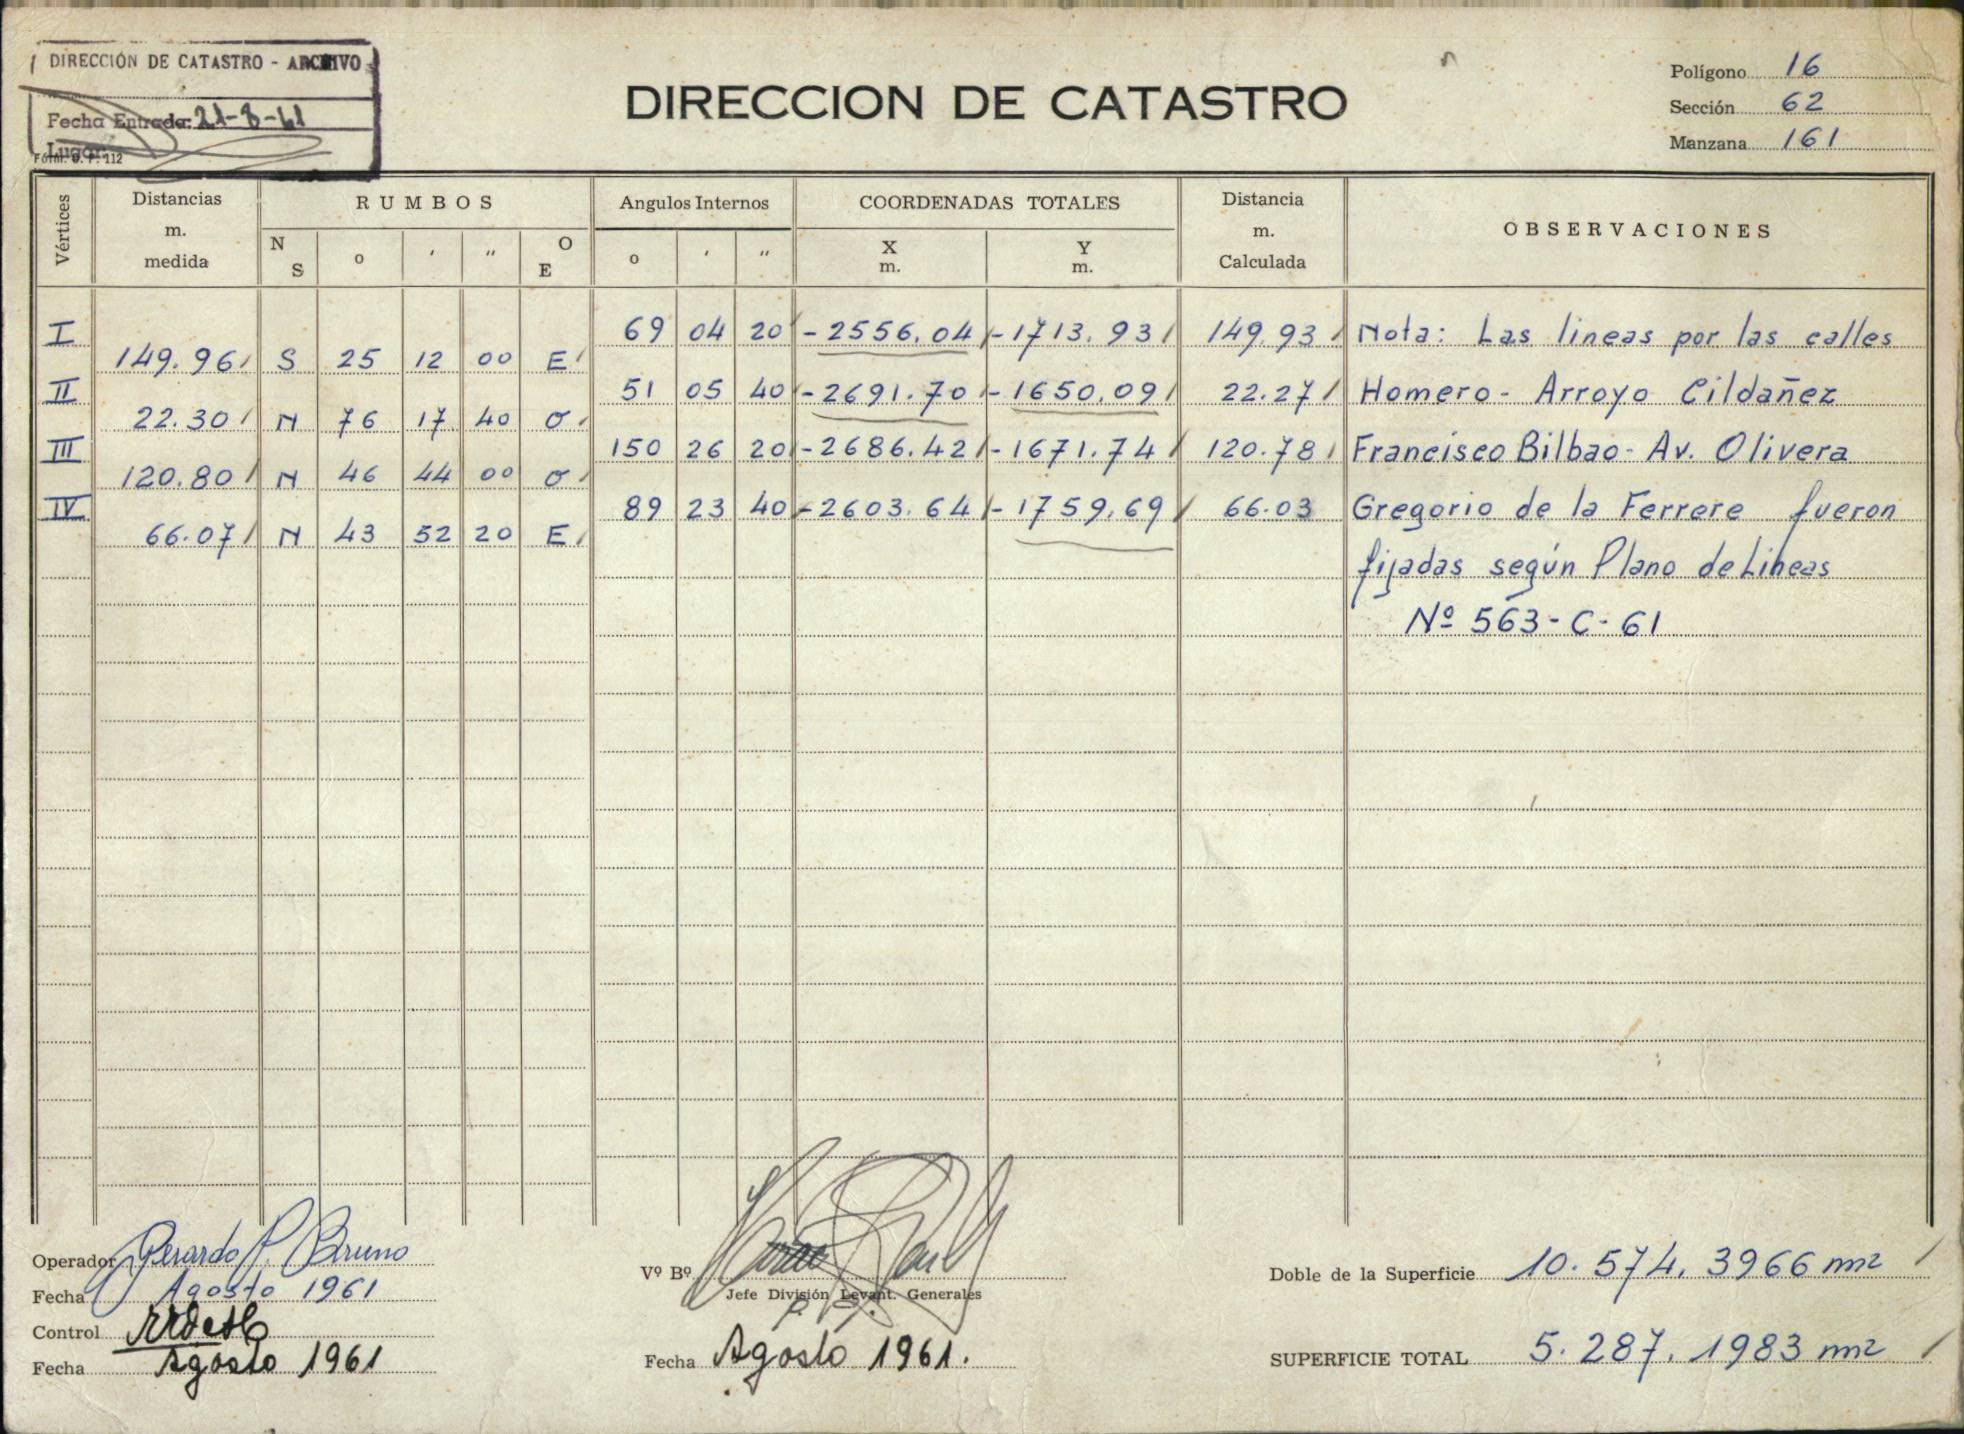 DIRECCIÓN DE CATASTRO - ARCHIVO
Fecha Entrada: 21-8-61
Lugar
Fórm. D. P. 112
DIRECCION DE CATASTRO
Polígono 16
Sección 62
Manzana 161
Vértices
Distancias m. medida
RUMBOS
N S ° ′ ″ O E
Angulos Internos
° ′ ″
COORDENADAS TOTALES
X m. Y m.
Distancia m. Calculada
OBSERVACIONES
I 69 04 20 -2556.04 -1713.93 149.93 Nota: Las lineas por las calles
149.96 S 25 12 00 E
II 51 05 40 -2691.70 -1650.09 22.27 Homero - Arroyo Cildañez
22.30 N 76 17 40 O
III 150 26 20 -2686.42 -1671.74 120.78 Francisco Bilbao - Av. Olivera
120.80 N 46 44 00 O
IV 89 23 40 -2603.64 -1759.69 66.03 Gregorio de la Ferrere fueron
66.07 N 43 52 20 E
fijadas según Plano de Lineas
Nº 563-C-61
Operador Gerardo P. Bruno
Fecha Agosto 1961
Control
Fecha Agosto 1961
Vº Bº
Jefe División Levant. Generales
Fecha Agosto 1961.
Doble de la Superficie 10.574.3966 m2
SUPERFICIE TOTAL 5.287.1983 m2